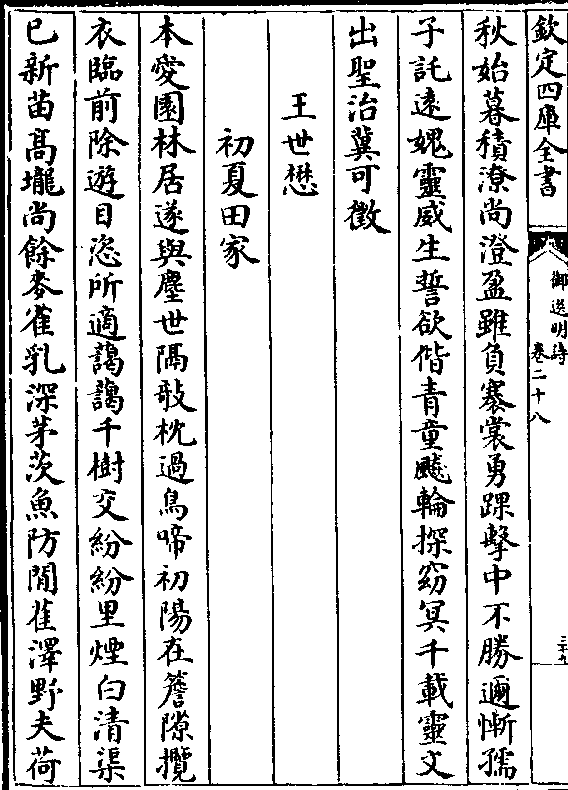 欽定四庫全書
御選明詩
卷二十八
三十九
秋始暮積潦尚澄盈雖負褰裳勇踝擊中不勝邇慚孺
子託遠媿靈威生誓欲偕青童飈輪探窈冥千載靈文
出聖治冀可徵
王世懋
初夏田家
本愛園林居遂與塵世隔敧枕過鳥啼初陽在簷隙攬
衣臨前除遊目恣所適藹藹千樹交紛紛里煙白清渠
已新苗高壠尚餘麥雀乳深茅茨魚防閒萑澤野夫荷